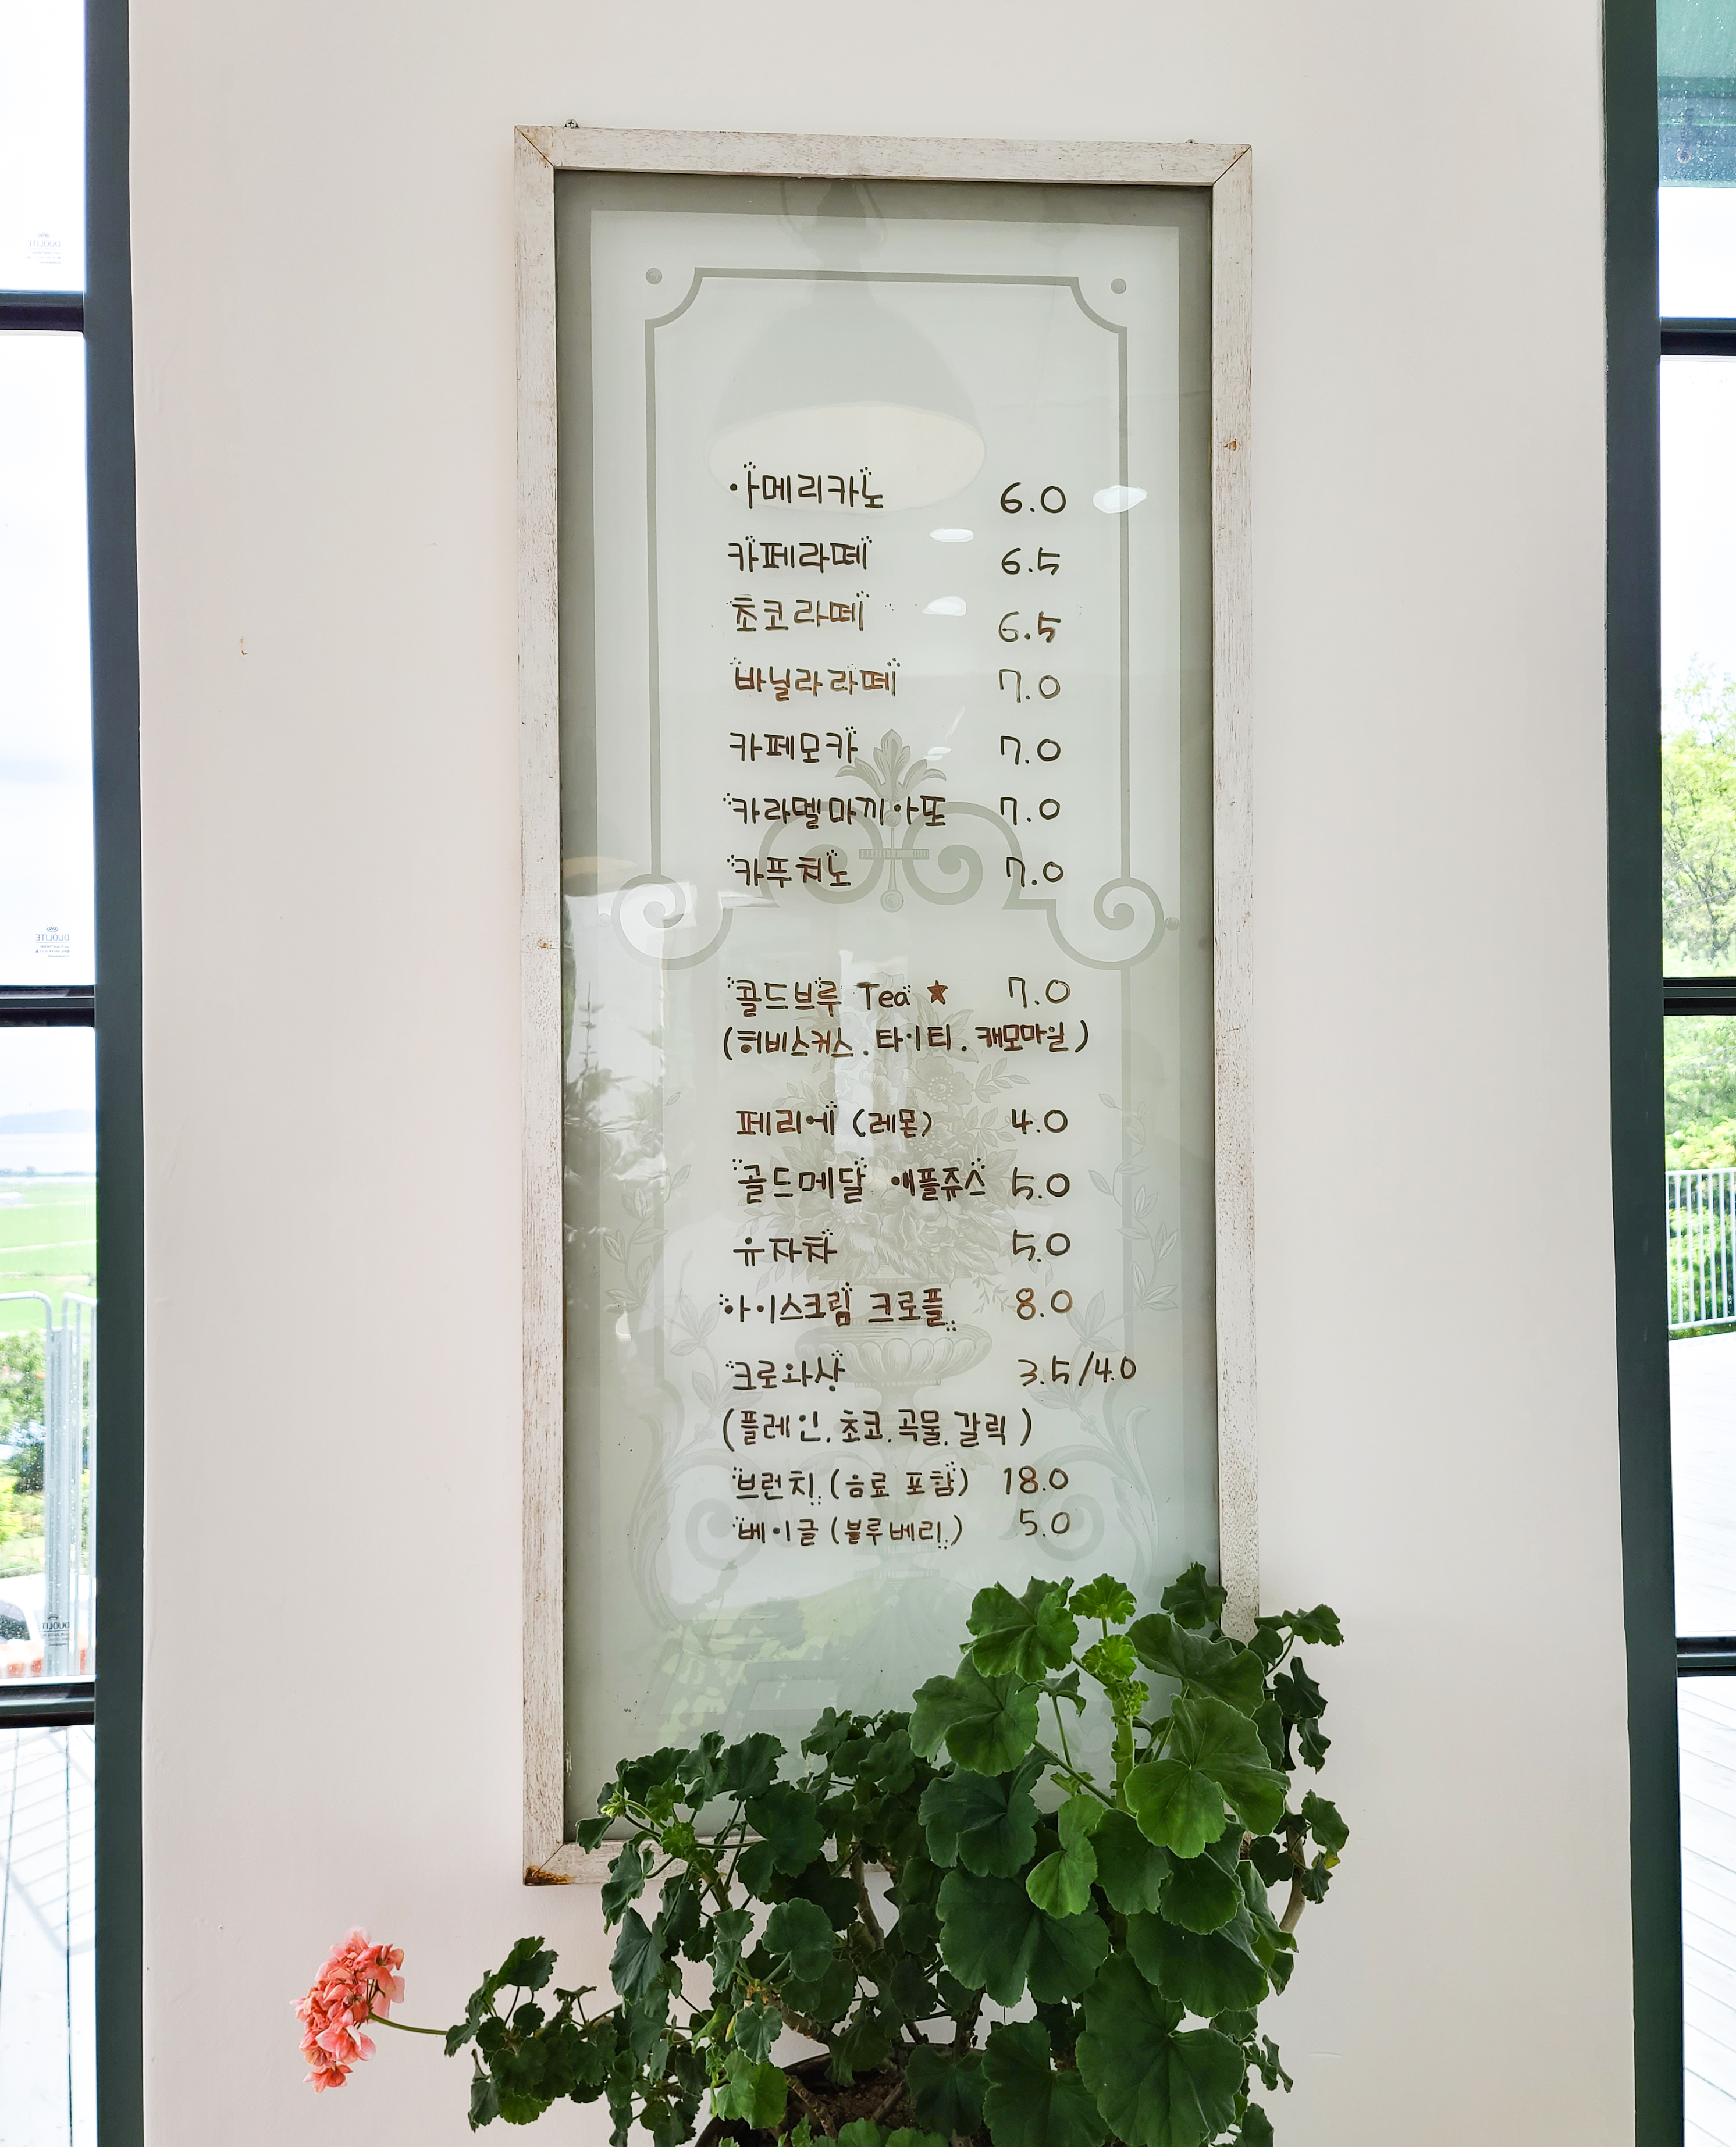 아메리카노 6.0
카페라떼 6.5
초코라떼 6.5
바닐라라떼 7.0
카페모카 7.0
카라멜마끼아또 7.0
카푸치노 7.0
콜드브루 Tea ★ 7.0
(히비스커스. 타이티. 캐모마일)
페리에 (레몬) 4.0
골드메달 애플쥬스 5.0
유자차 5.0
아이스크림 크로플 8.0
크로와상 3.5/4.0
(플레인. 초코. 곡물. 갈릭)
브런치 (음료 포함) 18.0
베이글 (블루베리) 5.0
DUOLITE
DUOLITE
DUOLITE